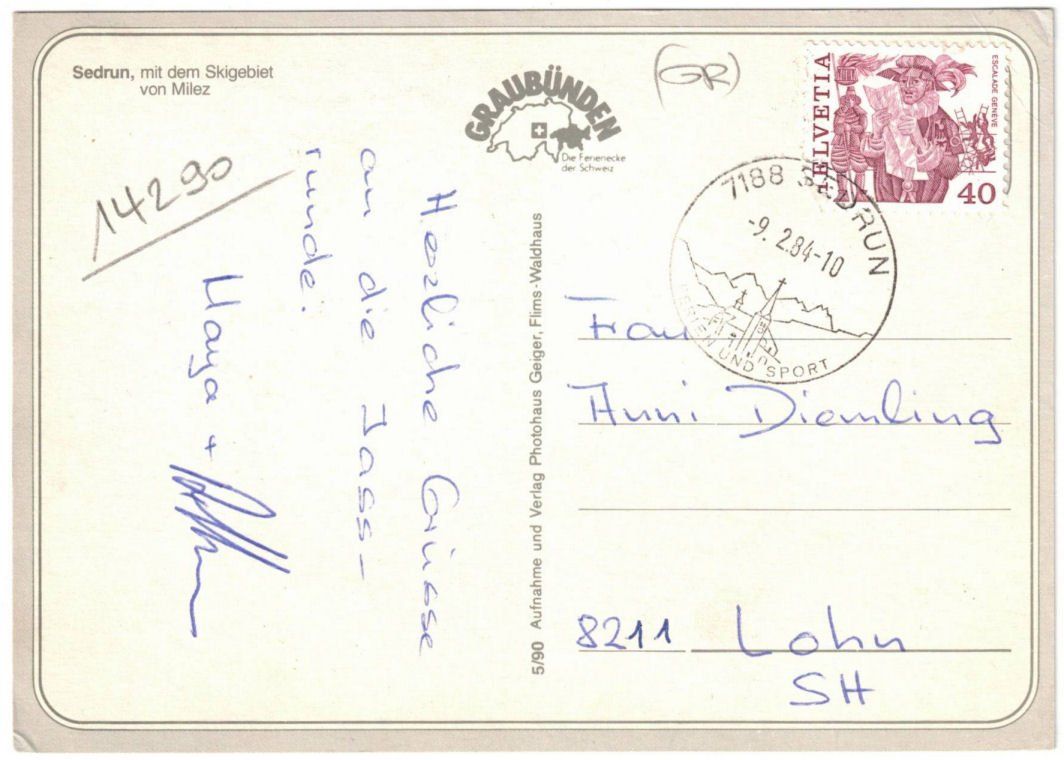 Sedrun, mit dem Skigebiet
von Milez
GRAUBÜNDEN
Die Ferienecke
der Schweiz
(GR)
HELVETIA
ESCALADE GENÈVE
40
7188 SEDRUN
-9.2.84-10
FERIEN UND SPORT
14290
Herzliche Grüsse
an die Jass-
runde.
+
5/90 Aufnahme und Verlag Photohaus Geiger, Flims-Waldhaus
Frau
Anni Diemling
8211 Lohn
SH